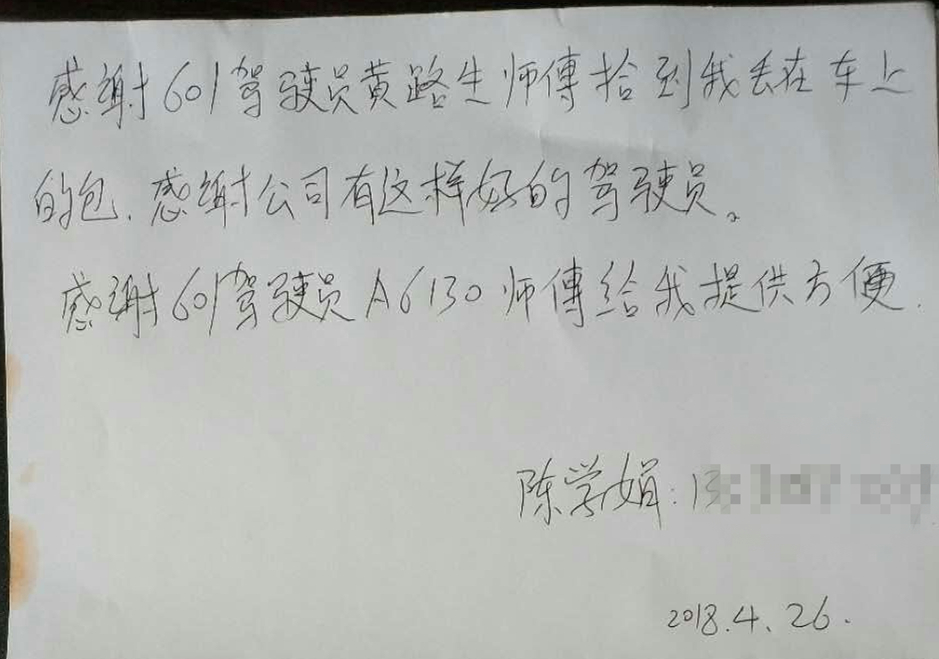 感谢601驾驶员黄路生师傅拾到我丢在车上
的包.感谢公司有这样好的驾驶员。
感谢601驾驶员A6130师傅给我提供方便.
陈学娟:13
2018.4.26.